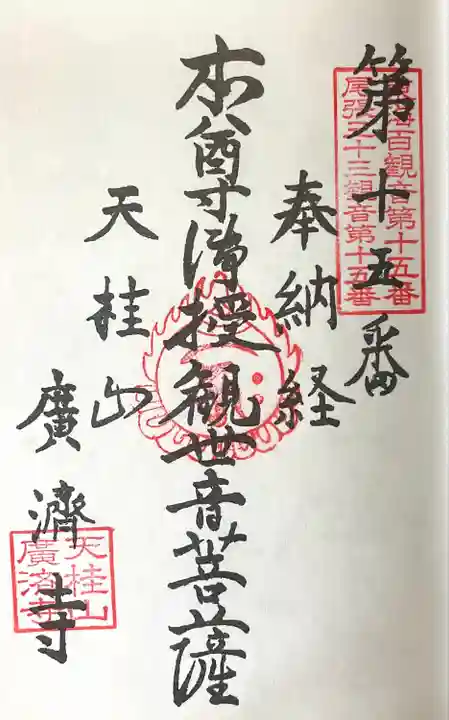 第十五番
東海百観音第十五番
尾張三十三観音第十五番
奉納経
本尊満授観世音菩薩
天桂山
廣濟寺
天桂山
廣済寺